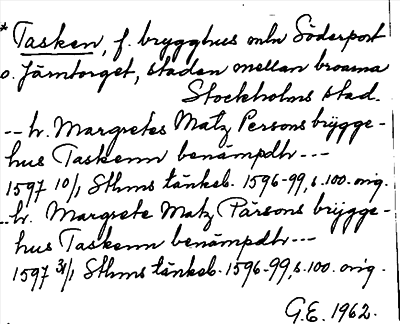 * Tasken, f. brygghus mln Söderport
o. Järntorget, staden mellan broarna
Stockholms stad.
-- h. Margretes Matz Persons brÿgge-
hus Taskenn benämpdh ---
1597 10/1 Sthms tänkeb. 1596-99, s. 100. orig.
-- h. Margrete Matz Pärsons brÿgge-
hus Taskenn benämpdh ---
1597 31/1 Sthms tänkeb. 1596-99, s. 100. orig.
G.E. 1962.